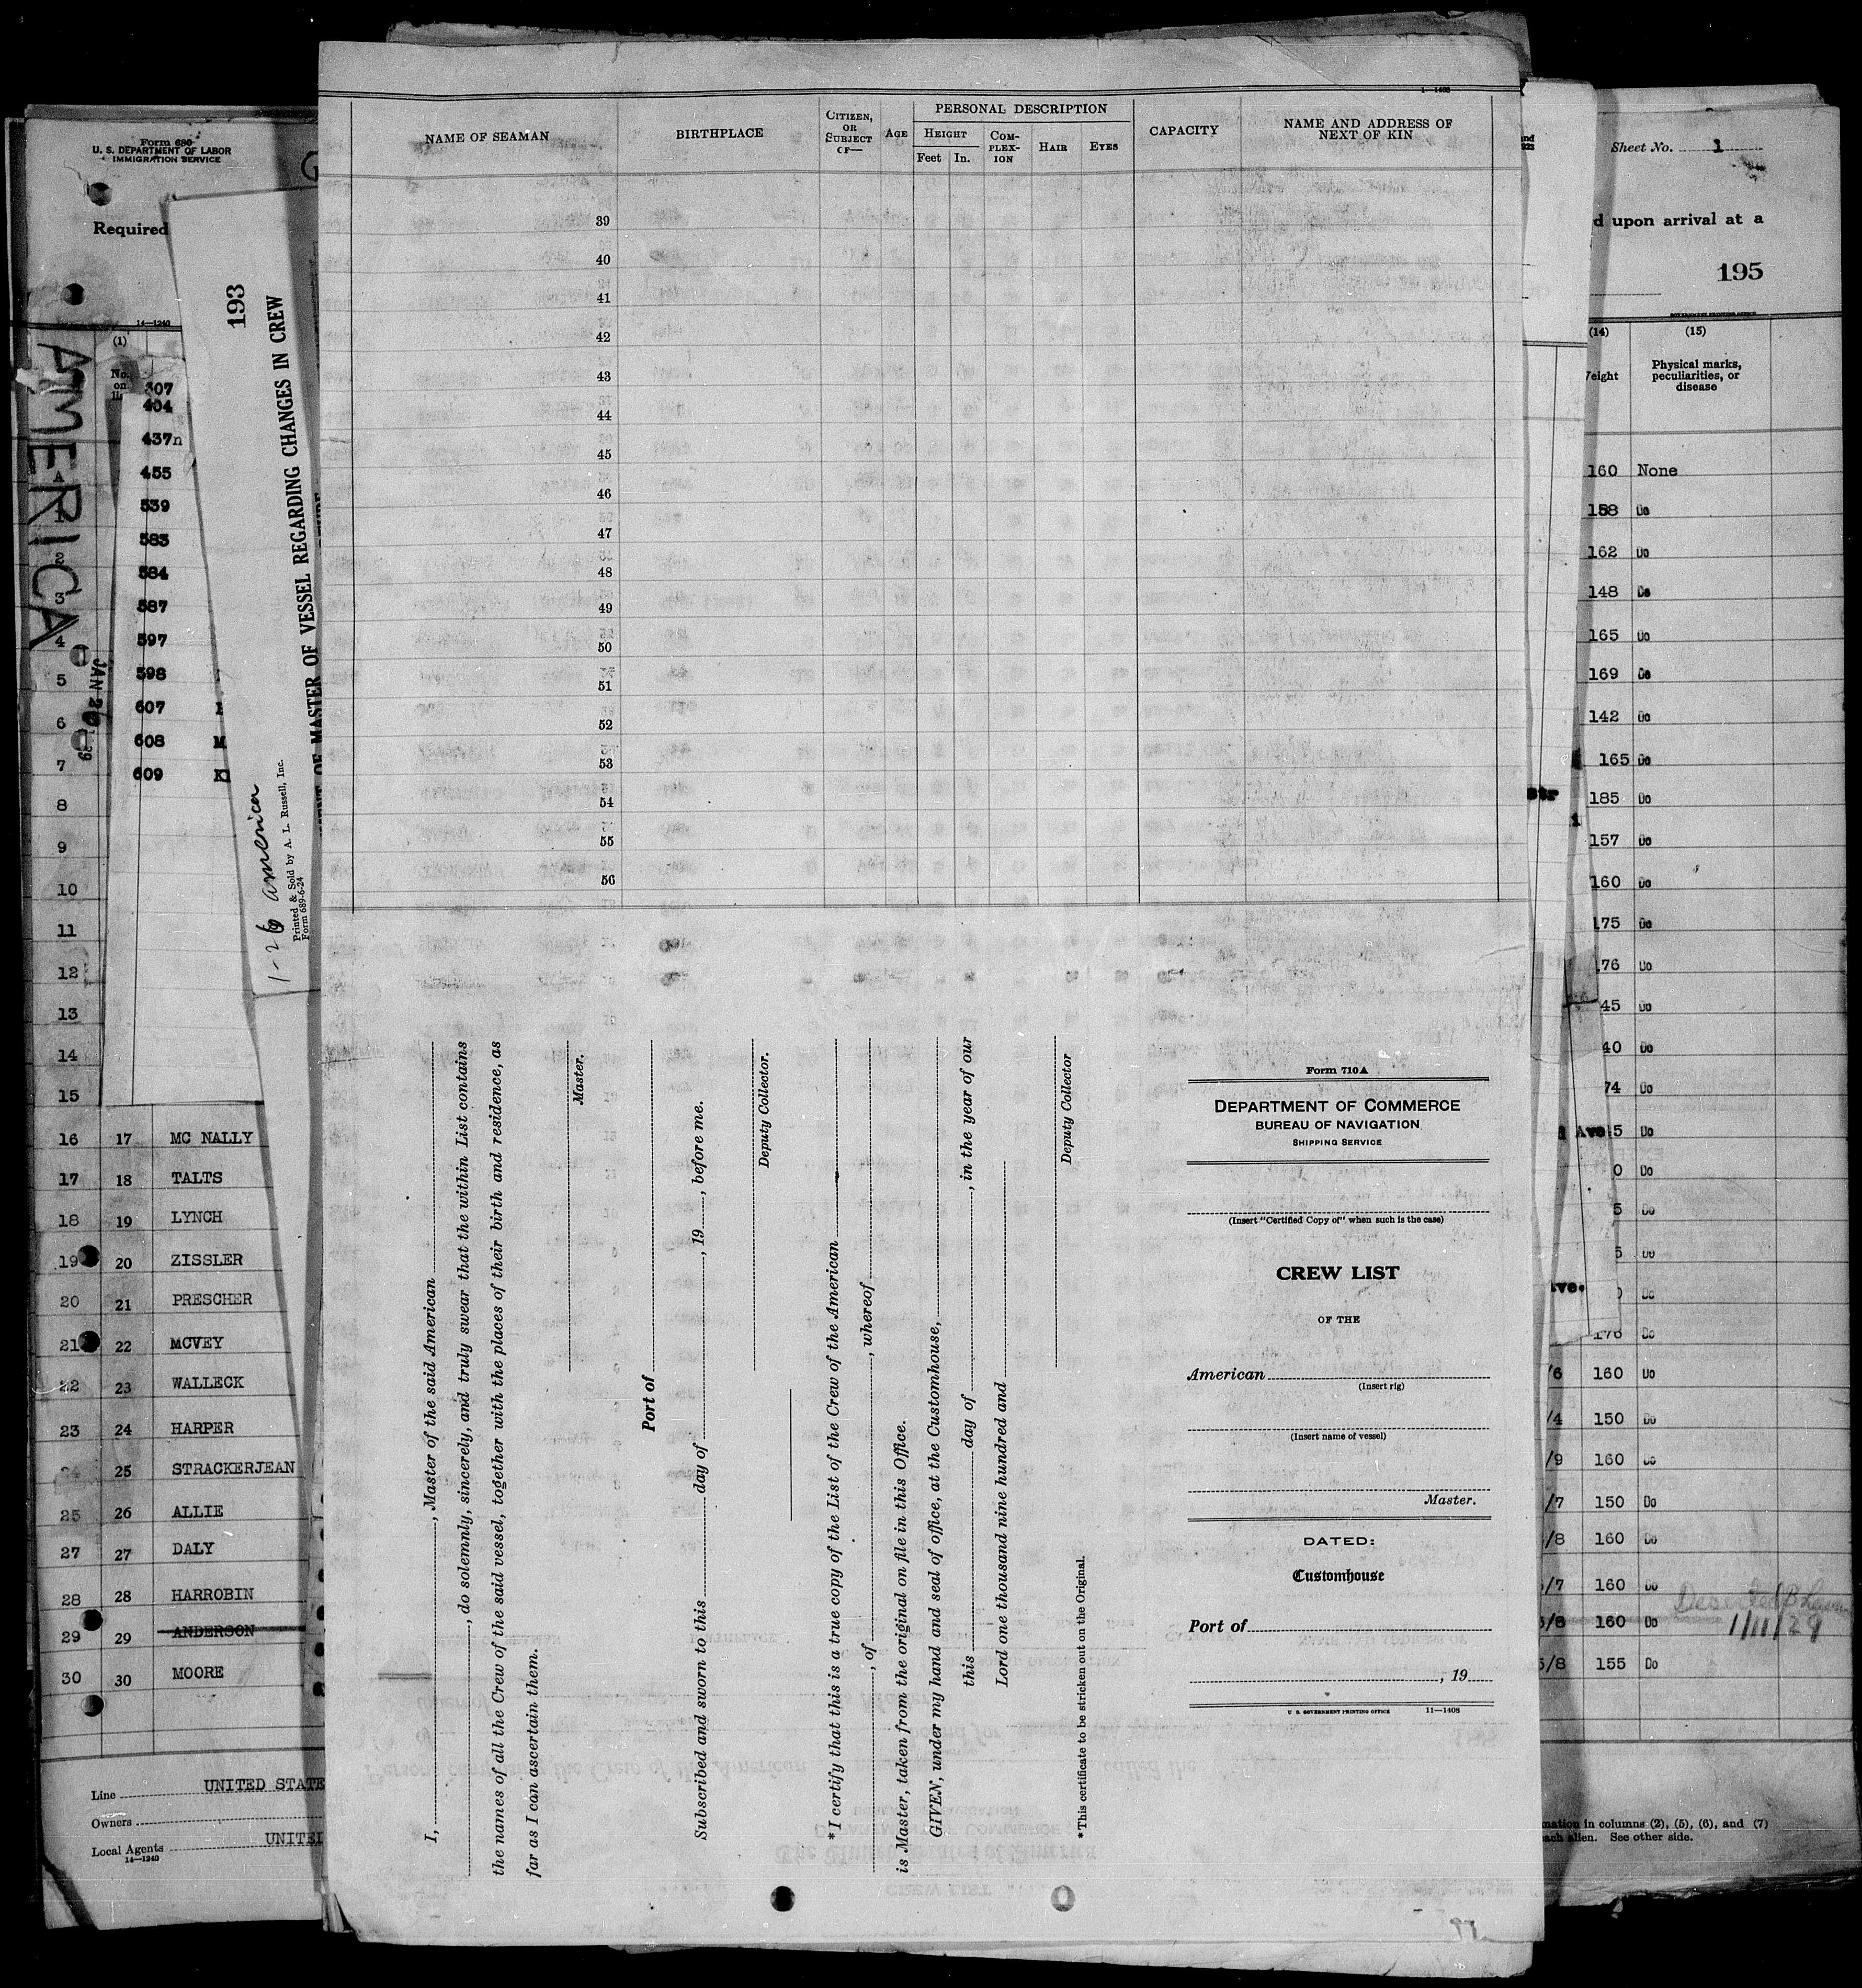 Form 680
U. S. DEPARTMENT OF LABOR
IMMIGRATION SERVICE
Required
14—1240
AMERICA
JAN 26
(1)
No.
on
307
404
437n
455
539
583
584
587
597
598
607
608 M
609
A
1
2
3
4
5
6
7
8
9
10
11
12
13
14
15
16 17 MC NALLY
17 18 TALTS
18 19 LYNCH
19 20 ZISSLER
20 21 PRESCHER
21 22 MCVEY
22 23 WALLECK
23 24 HARPER
24 25 STRACKERJEAN
25 26 ALLIE
27 27 DALY
28 28 HARROBIN
29 29 ANDERSON
30 30 MOORE
Line UNITED STATE
Owners
Local Agents UNITE
14—1240
193
OF MASTER OF VESSEL REGARDING CHANGES IN CREW
1-26 america
Printed & Sold by A. L. Russell, Inc.
Form 689-6-24
NAME OF SEAMAN
BIRTHPLACE
CITIZEN,
OR
SUBJECT
OF—
AGE
PERSONAL DESCRIPTION
HEIGHT
Feet In.
COM-
PLEX-
ION
HAIR
EYES
CAPACITY
NAME AND ADDRESS OF
NEXT OF KIN
39
40
41
42
43
44
45
46
47
48
49
50
51
52
53
54
55
56
I, , Master of the said American
, do solemnly, sincerely, and truly swear that the within List contains
the names of all the Crew of the said vessel, together with the places of their birth and residence, as
far as I can ascertain them.
Master.
Port of
Subscribed and sworn to this day of , 19 , before me.
Deputy Collector.
*I certify that this is a true copy of the List of the Crew of the American
, of , whereof
is Master, taken from the original on file in this Office.
GIVEN, under my hand and seal of office, at the Customhouse,
this day of , in the year of our
Lord one thousand nine hundred and
Deputy Collector
*This certificate to be stricken out on the Original.
Form 710A
DEPARTMENT OF COMMERCE
BUREAU OF NAVIGATION
SHIPPING SERVICE
(Insert "Certified Copy of" when such is the case)
CREW LIST
OF THE
American
(Insert rig)
(Insert name of vessel)
Master.
DATED:
Customhouse
Port of
, 19
U. S. GOVERNMENT PRINTING OFFICE 11—1408
Sheet No. 1
d upon arrival at a
195
GOVERNMENT PRINTING OFFICE
(14) (15)
eight
Physical marks,
peculiarities, or
disease
160 None
158 Do
162 Do
148 Do
165 Do
169 Do
142 Do
165 Do
Str 185 Do
157 Do
160 Do
175 Do
76 Do
45 Do
40 Do
74 Do
Ave 5 Do
0 Do
5 Do
5 Do
Ave. Do
176 Do
/6 160 Do
/4 150 Do
/9 160 Do
/7 150 Do
/8 160 Do
/7 160 Do
5/8 160 Do Deserted
1/11/29
5/8 155 Do
mation in columns (2), (5), (6), and (7)
ach alien. See other side.